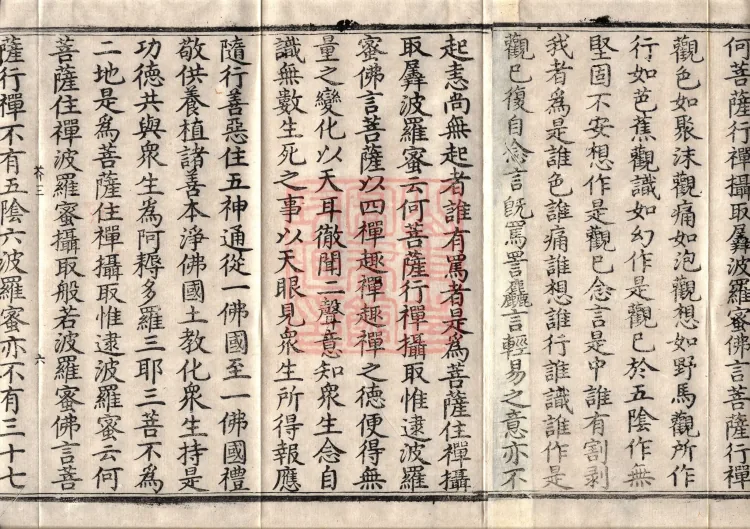 何菩薩行禪攝取羼波羅蜜佛言菩薩行禪
觀色如聚沫觀痛如泡觀想如野馬觀所作
行如芭蕉觀識如幻作是觀已於五陰作無
堅固不安想作是觀已念言是中誰有割剥
我者為是誰色誰痛誰想誰行誰識誰作是
觀已復自念言旣罵詈麤言輕易之意亦不
起恚尚無起者誰有罵者是為菩薩住禪攝
取羼波羅蜜云何菩薩行禪攝取惟逮波羅
蜜佛言菩薩以四禪趣禪趣禪之德便得無
量之變化以天耳徹聞二聲意知衆生念自
識無數生死之事以天眼見衆生所得報應
隨行善惡住五神通從一佛國至一佛國禮
敬供養植諸善本淨佛國土教化衆生持是
功德共與衆生為阿耨多羅三耶三菩不為
二地是為菩薩住禪攝取惟逮波羅蜜云何
菩薩住禪波羅蜜攝取般若波羅蜜佛言菩
芥三 六
薩行禪不有五陰六波羅蜜亦不有三十七